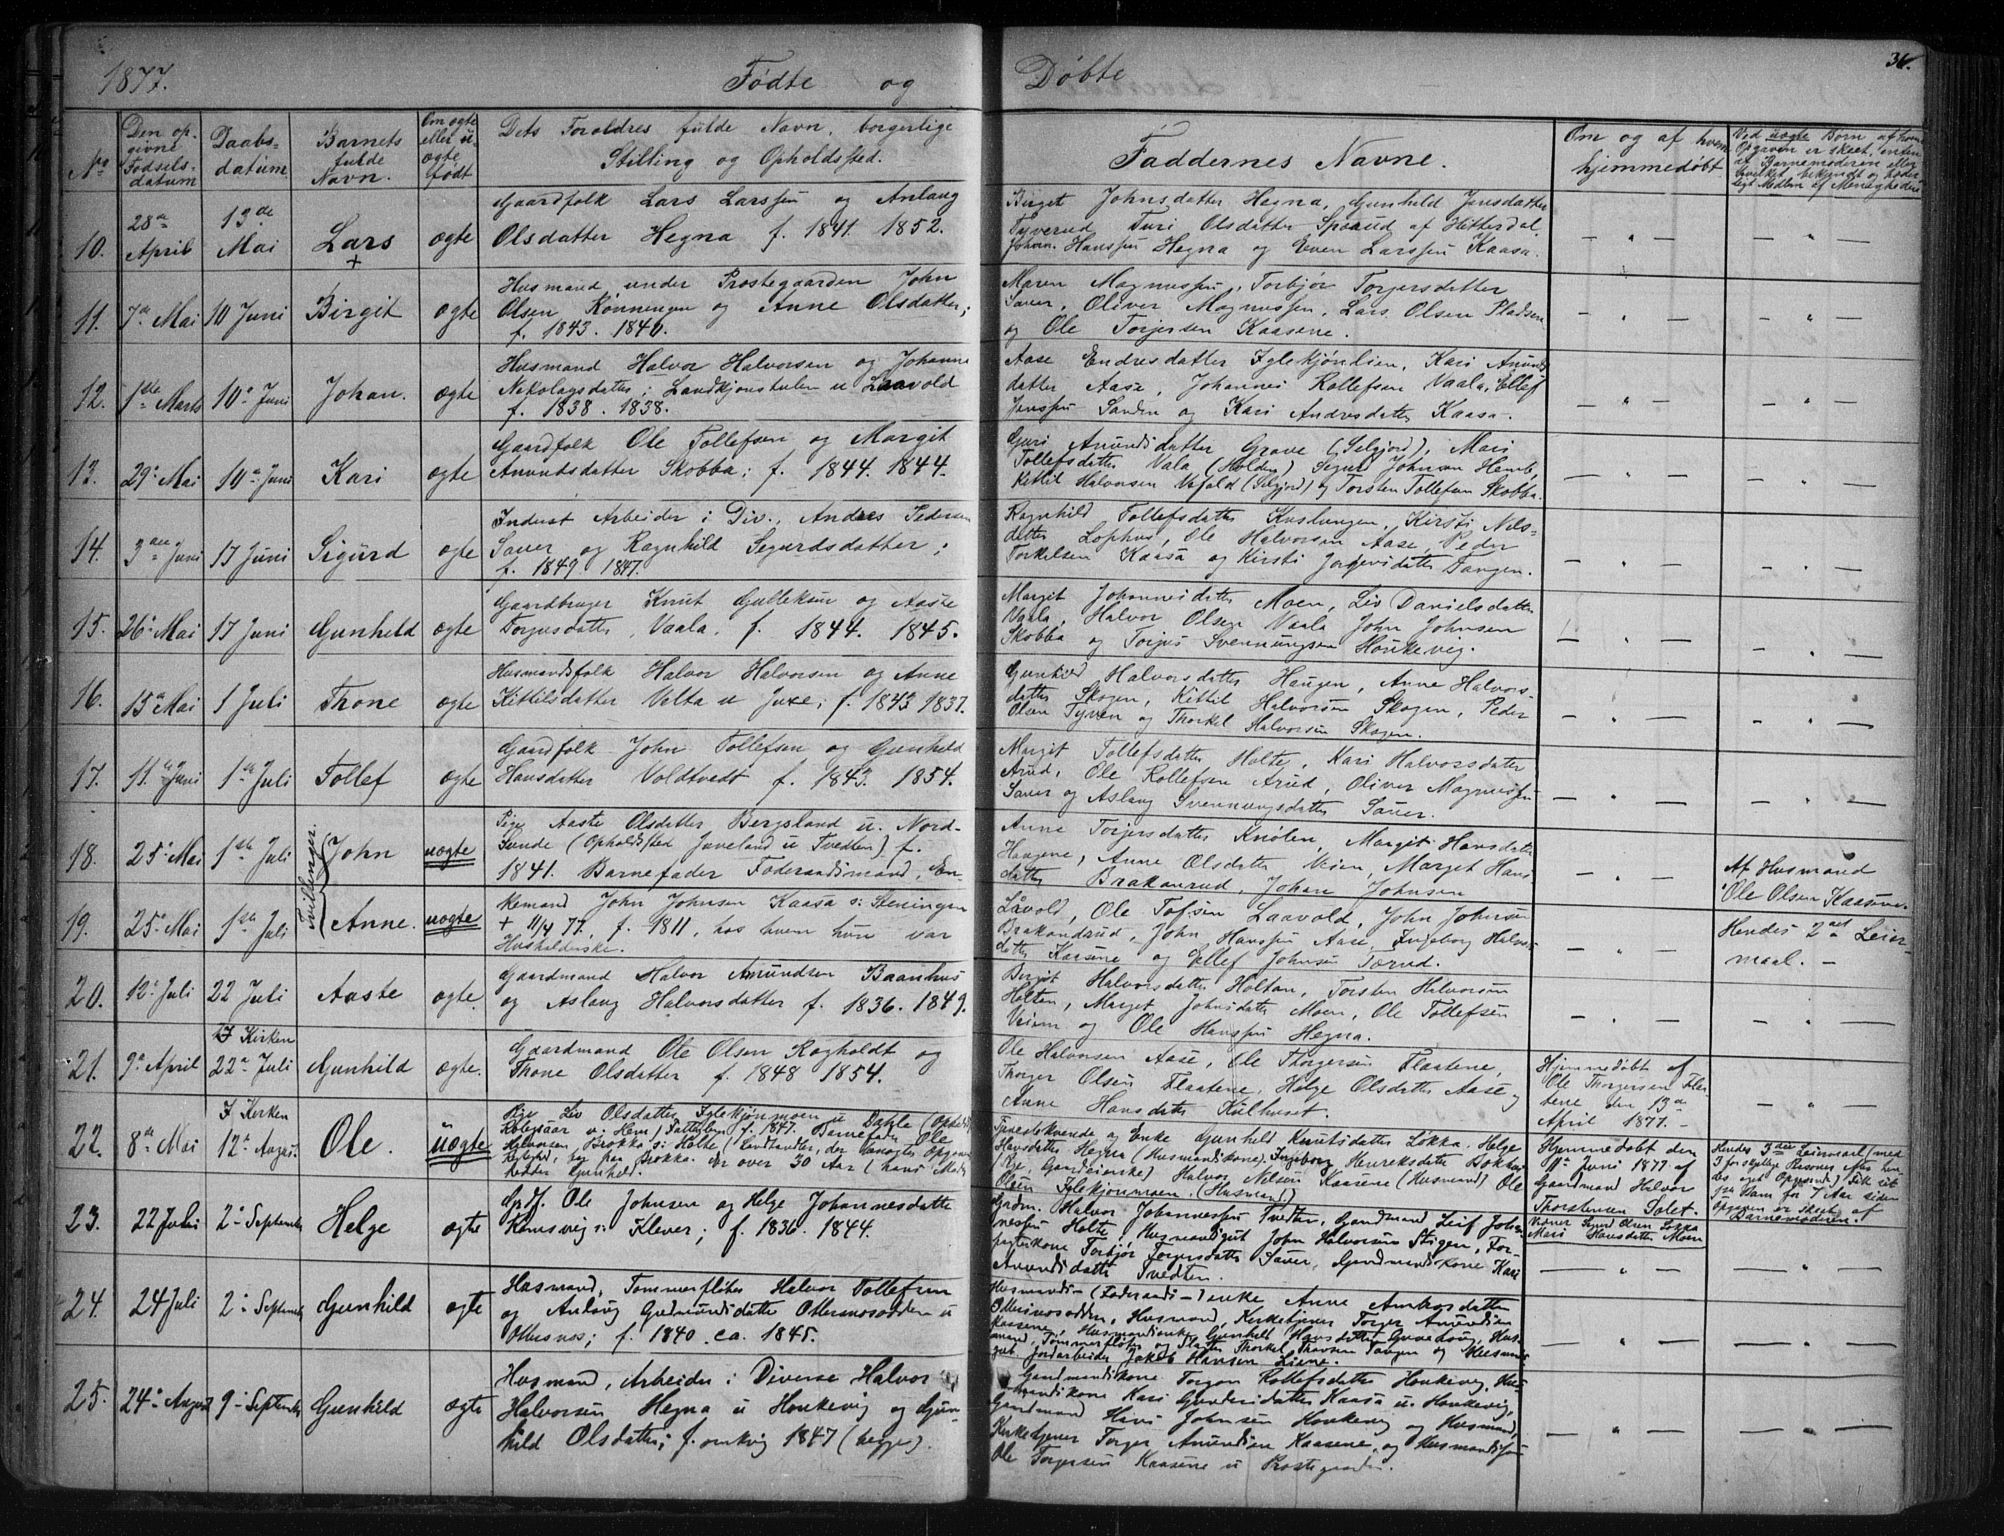 1877.
Fødte og
Døbte
31.
No
Den op-
givne
Fødsels-
datum
Daabs-
datum
Barnets
fulde
Navn.
Om ægte
eller u-
ægte
født
Dets Forældres fulde Navn, borgerlige
Stilling og Opholdsted.
Faddernes Navne.
Om og af hvem
hjemmedøbt
Ved uægte Børn af hvem
Opgaven er skeet, enten
af Barnemoderen eller
hvilket bekjendt og hæder-
ligt Medlem af Menigheden
10.
28de
April
13de
Mai
Lars
+
ægte
Gaardfolk Lars Larssen og Aslaug
Olsdatter Hegna f. 1841. 1852.
Birget Johnsdatter Hegna, Gunhild Jonsdatter
Tyverud Turi Olsdatter Spaaud af Hitterdal,
Johan Hanssen Hegna og Even Larssen Kaasa.
11.
7de Mai
10 Juni
Birgit
ægte
Husmand under Prostegaarden John
Olsen Rønningen og Anne Olsdatter;
f. 1843. 1846.
Maren Magnussen, Torbjør Torjersdatter
Sauer, Oliver Magnussen, Lars Olsen Pladsen
og Ole Torjersen Kaasene.
12.
1ste Marts
10de Juni
Johan.
ægte
Husmand Halvor Halvorsen og Johanne
Nikolaysdatter; Landkjonstulen u Laavold
f. 1838. 1838.
Aase Endresdatter Iglekjønlien, Kari Anund-
datter Aase, Johannes Rollefsen Vaala, Ellef
Jenssen Sanden og Kari Andresdatter Kaasa.
13.
29de Mai
10de Juni
Kari
ægte
Gaardfolk Ole Tollefsen og Margit
Anundsdatter Skobba; f. 1844. 1844.
Guri Anundsdatter Grave (Selgjord), Mari
Tollefsdatter Vala (Holden) Segur Johnsen Hemb,
Kittil Halvorsen Vefald (Selgjord) og Torsten Tollefsen Skobba.
14.
3die Juni
17 Juni
Sigurd
ægte
Inderst Arbeider i Div., Andres Pedersen
Sauer og Ragnhild Segurdsdatter;
f. 1849. 1847.
Ragnhild Tollefsdatter Kuslungen, Kirsti Nils-
datter Lophus, Ole Halvorsen Aase, Peder
Torkelsen Kaasa og Kirsti Jorgensdatter Tangen.
15.
26de Mai
17 Juni
Gunhild
ægte
Gaardbruger Knut Gulleksen og Aaste
Torjusdatter, Vaala. f. 1844. 1845.
Margit Johannesdatter Moen, Liv Danielsdatter
Vaala, Halvor Olsen Vaala John Johnsen
Skobba og Torjus Svennungsen Honkevig.
16.
15de Mai
1 Juli
Trone
ægte
Husmandsfolk Halvor Halvorsen og Anne
Kittilsdatter Velta u Juve; f. 1843 1837.
Gunhild Halvorsdatter Haugen, Anne Halvors-
datter Skogen, Kittil Halvorsen Skogen, Peder
Olsen Tyven og Thorkel Halvorsen Skogen.
17.
11de Juni
1ste Juli
Tollef
ægte
Gaardfolk John Tollefsen og Gunhild
Hansdatter Voldtvedt f. 1843. 1854.
Margit Tollefsdatter Holte, Kari Halvorsdater
Arud, Ole Rollefsen Arud, Oliver Magnussen
Sauer og Aslaug Svennungsdatter Sauer.
18.
25de Mai
1ste Juli
Tvillinger.
John
uægte
Pige Aaste Olsdatter Bergsland u. Nord-
funde (Opholdsted Juveland u Tvedten) f.
1841. Barnefader Føderaadsmand, En-
Anne Torjersdatter Knølen, Margit Hansdatter
Haugene, Anne Olsdatter Veien, Marget Hans-
datter Brakanrud, Johan Johnsen
Af Husmand
Ole Olsen Kaasene
19.
25de Mai
1ste Juli
Anne.
uægte
kemand John Johnsen Kaasa s: Steningen
+ 11/4 77, f. 1811, hos hvem hun var
Husholderske.
Låvold, Ole Tofsen Laavold, John Johnsen
Brakandrud, John Hanssen Aase, Ingeborg Halvors-
datter Kaasene og Ellef Johnsen Torud.
Hendes 2det Leier-
maal. —
20.
12te Juli
22 Juli
Aaste
ægte
Gaardmand Halvor Anundsen Baanhus
og Aslaug Halvorsdatter f. 1836. 1849.
Birgit Halvorsdatter Holtan, Torsten Halvorsen
Holten, Marget Johnsdatter Moen, Ole Tollefsen
Veien og Ole Hanssen Hegna.
21.
9de April
I Kirken
22de Juli
Gunhild
ægte.
Gaardmand Ole Olsen Ragholdt og
Trone Olsdatter f. 1848 1854.
Ole Halvorsen Aase, Ole Thorgersen Flaatene,
Thorger Olsen Flaatene, Helge Olsdatter Aase og
Anne Hansdatter Kulhuset.
Hjemmedøbt af
Ole Thorgersen Fla-
tene den 13de
April 1877.
22.
8de Mai
I Kirken
12te August
Ole.
uægte
Pige Liv Olsdatter Iglekjønmoen u Dahle (Ophold
Halvorsen Brokka s: Holte
over 30 Aar
Gunhild.
og Enke Gunhild Knutsdatter Løkka, Helge
Hansdatter Hegna (Husmandskone), Ingeborg Henriksdatter
Halvor Nilsen Kaasene (Husmand) Ole
Olsen Iglekjønmoen (Husmand.)
Hjemmedøbt den
Juni 1877 af
Gaardmand Halvor
Thorstensen Solet.
Hendes 3die Leiermaal (med
3 forskjellige
for 7 Aar siden
Opgaven er skeet af
Barnemoderen.
23.
22 Juli
2den September
Helge
ægte
Grdf. Ole Johnsen og Helge Johannesdatter
Konsvig s: Klever; f. 1836. 1844.
Grdm. Halvor Johannessen Tvedten, Gaardmand Leif Johan-
nessen Holte, Husmandsgut John Halvorsen Stigen, For-
pagterkone Torbjør Torgersdatter Sauer, Gaardmandskone Kari
Anundsdatter Tvedten.
24.
24 Juli
2den September
Gunhild
ægte
Husmand, Tømmerfløter Halvor Tollefsen
og Aslaug Gudmundsdatter Otternesodden u
Otternes; f. 1840. ca. 1845.
Husmands- (Føderaads-) enke Anne Ambrosdatter
Otternesodden, Husmand, Kirketjener Torger Anundsen
Kaasene,
Jordarbeider Jakob Hansen Liane.
25.
24de August
9de September
Gunhild
ægte
Husmand, Arbeider i Diverse Halvor
Halvorsen Hegna u Honkevig og Gun-
hild Olsdatter; f. omkrig 1847 (begge).
Gaardmandskone Torgon Rollefsdatter Honkevig, Hus-
mandskone Kari Gundersdatter Kaasa u. Honkevig,
Gaardmand Hans Johnsen Honkevig og Husmand,
Kirketjener Torger Anundsen Kaasene, og Husmandssøn
Ole Torgersen Kaasene u Prostegaarden.